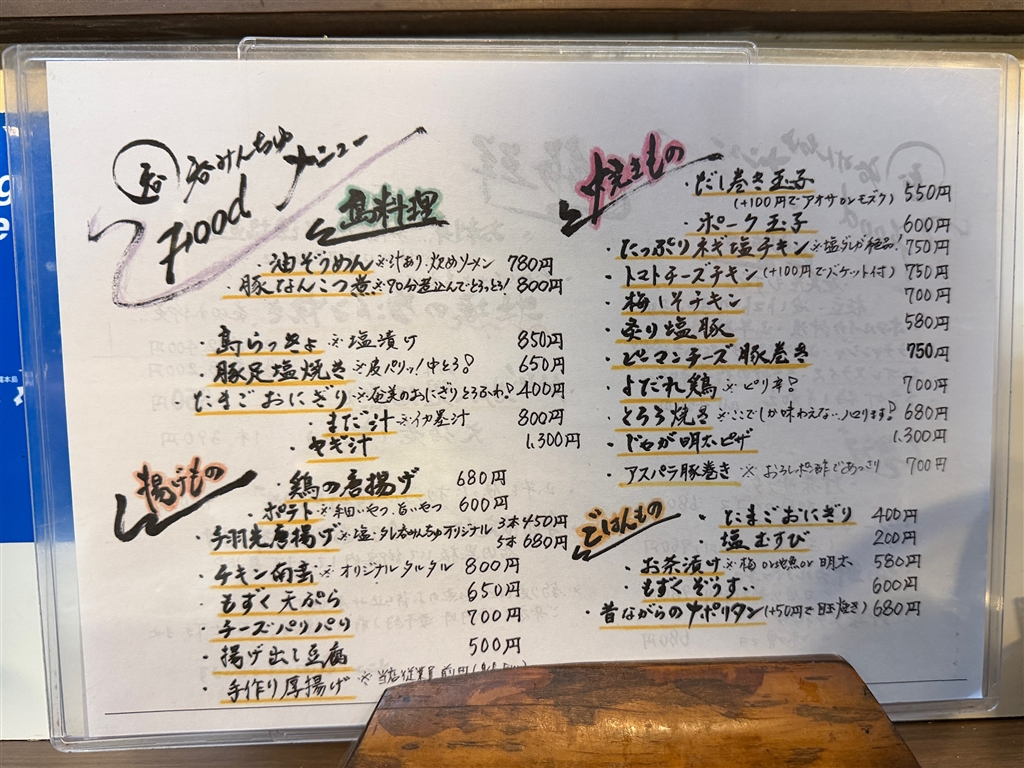 呑みんちゅ
Food メニュー
島料理
・油ぞうめん ※汁あり、炒めソーメン 780円
・豚なんこつ煮 ※70分煮込んでとろっとろ! 800円
・島らっきょ ※塩漬け 850円
・豚足塩焼き ※皮パリッ!中とろ! 650円
・たまごおにぎり ※奄美のおにぎりとろふわ? 400円
・まだ汁 ※イカ墨汁 800円
・ヤギ汁 1,300円
揚げもの
・鶏の唐揚げ 680円
・ポテト ※細いやつ、旨いやつ 600円
・手羽先唐揚げ ※塩・タレ呑みんちゅオリジナル 3本450円
5本680円
・チキン南蛮 ※オリジナルタルタル 800円
・もずく天ぷら 650円
・チーズパリパリ 700円
・揚げ出し豆腐 500円
・手作り厚揚げ ※当店従業員前田
焼きもの
・だし巻き玉子 550円
(+100円でアオサorモズク)
・ポーク玉子 600円
・たっぷりネギ塩チキン ※塩ダレが絶品! 750円
・トマトチーズチキン (+100円でバケット付) 750円
・梅しそチキン 700円
・炙り塩豚 580円
・ピーマンチーズ豚巻き 750円
・よだれ鶏 ※ピリ辛? 700円
・とろろ焼き ※ここでしか味わえない、ハマります? 680円
・じゃが明太ピザ 1,300円
・アスパラ豚巻き ※おろしポン酢であっさり 700円
ごはんもの
・たまごおにぎり 400円
・塩むすび 200円
・お茶漬け ※梅or地魚or明太 580円
・もずくぞうすい 600円
・昔ながらのナポリタン (+50円で目玉焼き) 680円